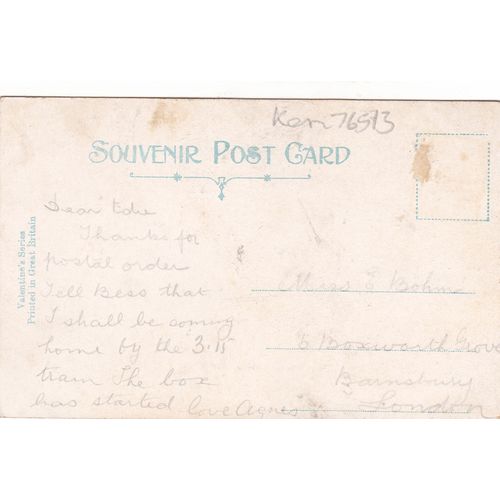 Ken 76513
SOUVENIR POST CARD
Valentine's Series
Printed in Great Britain
Dear Edie
Thanks for
postal order
Tell Bess that
I shall be coming
home by the 3.15
train The box
has started love Agnes
Miss E Bohm
6 Boxworth Grove
Barnsbury
London